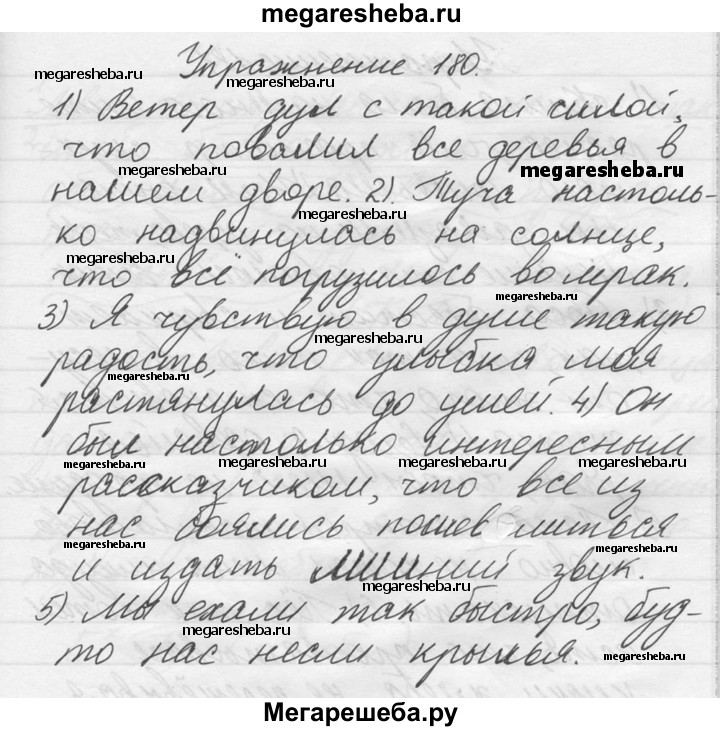 megaresheba.ru
Упражнение 180.
megaresheba.ru megaresheba.ru
1) Ветер дул с такой силой,
что повалил все деревья в
megaresheba.ru megaresheba.ru
нашем дворе. 2) Туча настоль-
megaresheba.ru
ко надвинулась на солнце,
megaresheba.ru
что всё погрузилось во мрак.
megaresheba.ru
3) Я чувствую в душе такую
megaresheba.ru
радость, что улыбка моя
megaresheba.ru
растянулась до ушей. 4) Он
был настолько интересным
megaresheba.ru megaresheba.ru megaresheba.ru megaresheba.ru
рассказчиком, что все из
нас боялись пошев литься
megaresheba.ru megaresheba.ru
и издать лишний звук.
5) Мы ехали так быстро, буд-
megaresheba.ru
то нас несли крылья.
megaresheba.ru
Мегарешеба.ру